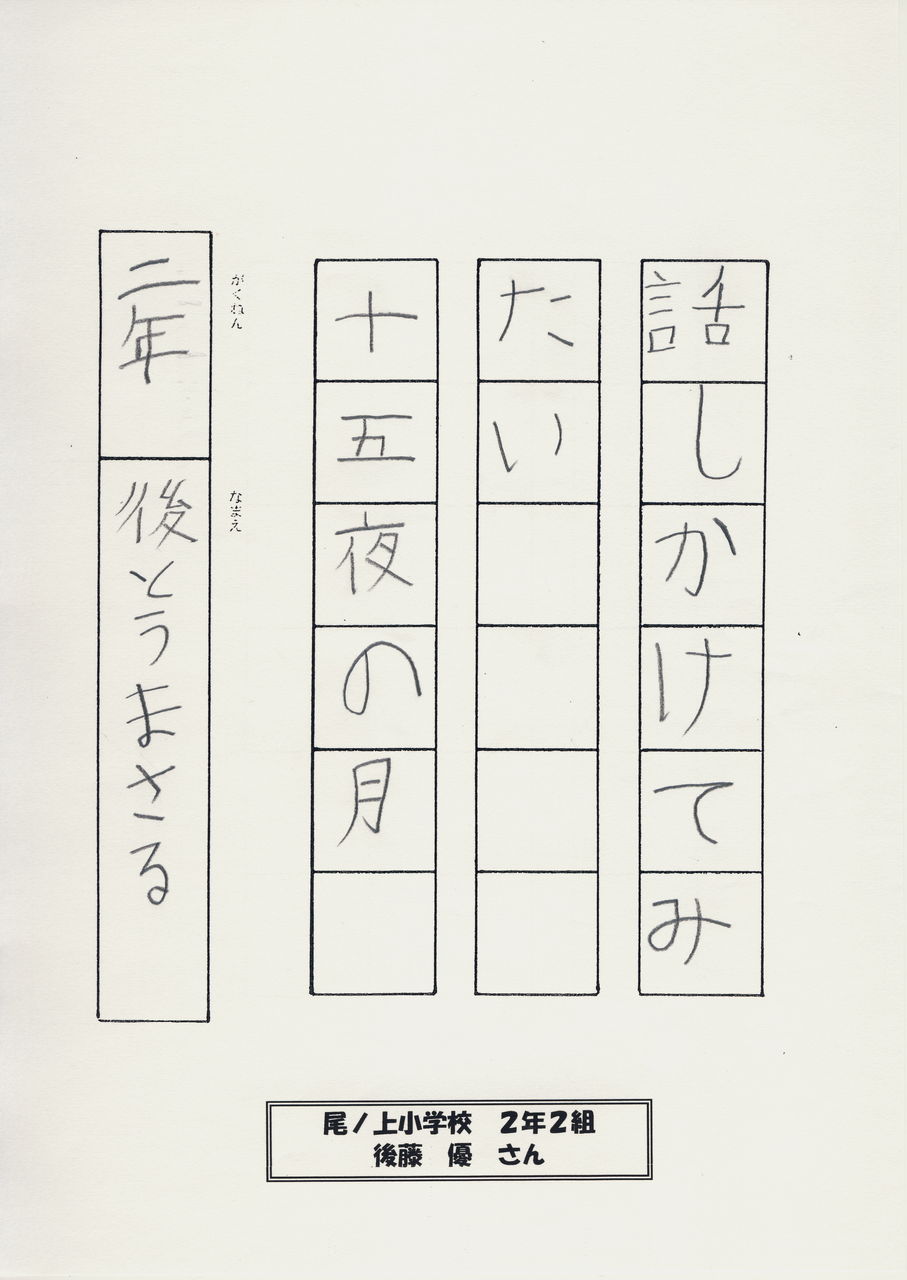 話しかけてみ
たい
十五夜の月
がくねん
二年
なまえ
後とうまさる
尾ノ上小学校 2年2組
後藤 優 さん